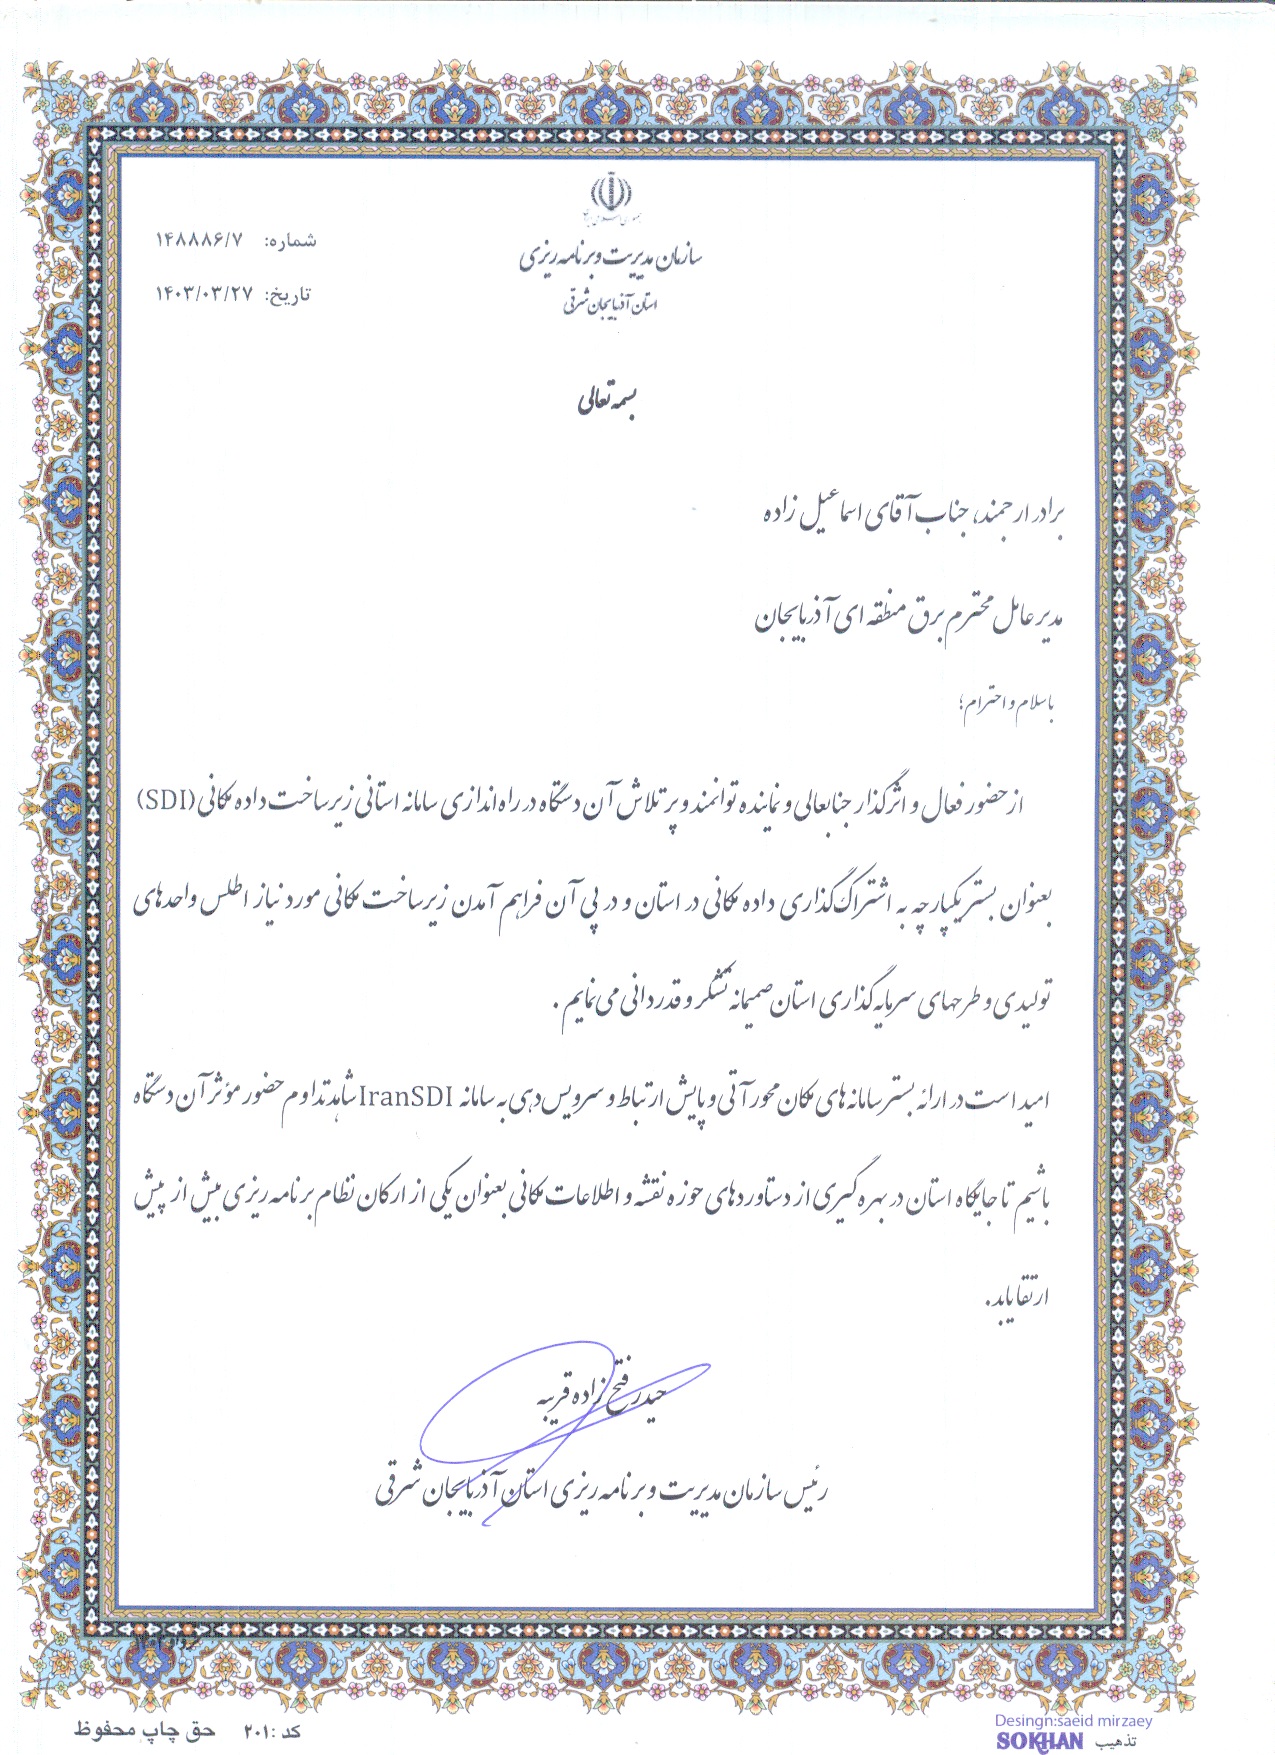 جمهوری اسلامی ایران
سازمان مدیریت و برنامه ریزی
استان آذربایجان شرقی
شماره: ۱۴۸۸۸۶/۷
تاریخ: ۱۴۰۳/۰۳/۲۷
بسمه تعالی
برادر ارجمند، جناب آقای اسماعیل زاده
مدیر عامل محترم برق منطقه ای آذربایجان
با سلام و احترام؛
از حضور فعال و اثرگذار جنابعالی و نماینده توانمند و پر تلاش آن دستگاه در راه اندازی سامانه استانی زیرساخت داده مکانی (SDI)
بعنوان بستر یکپارچه به اشتراک گذاری داده مکانی در استان و در پی آن فراهم آمدن زیرساخت مکانی مورد نیاز اطلس واحدهای
تولیدی و طرحهای سرمایه گذاری استان صمیمانه تشکر و قدردانی می نمایم .
امید است در ارائه بستر سامانه های مکان محور آتی و پایش ارتباط و سرویس دهی به سامانه IranSDI شاهد تداوم حضور مؤثر آن دستگاه
باشیم تا جایگاه استان در بهره گیری از دستاوردهای حوزه نقشه و اطلاعات مکانی بعنوان یکی از ارکان نظام برنامه ریزی بیش از پیش
ارتقا یابد.
حیدر فتح زاده قریبه
رئیس سازمان مدیریت و برنامه ریزی استان آذربایجان شرقی
کد :۲۰۱ حق چاپ محفوظ
Desingn:saeid mirzaey
تذهیب SOKHAN